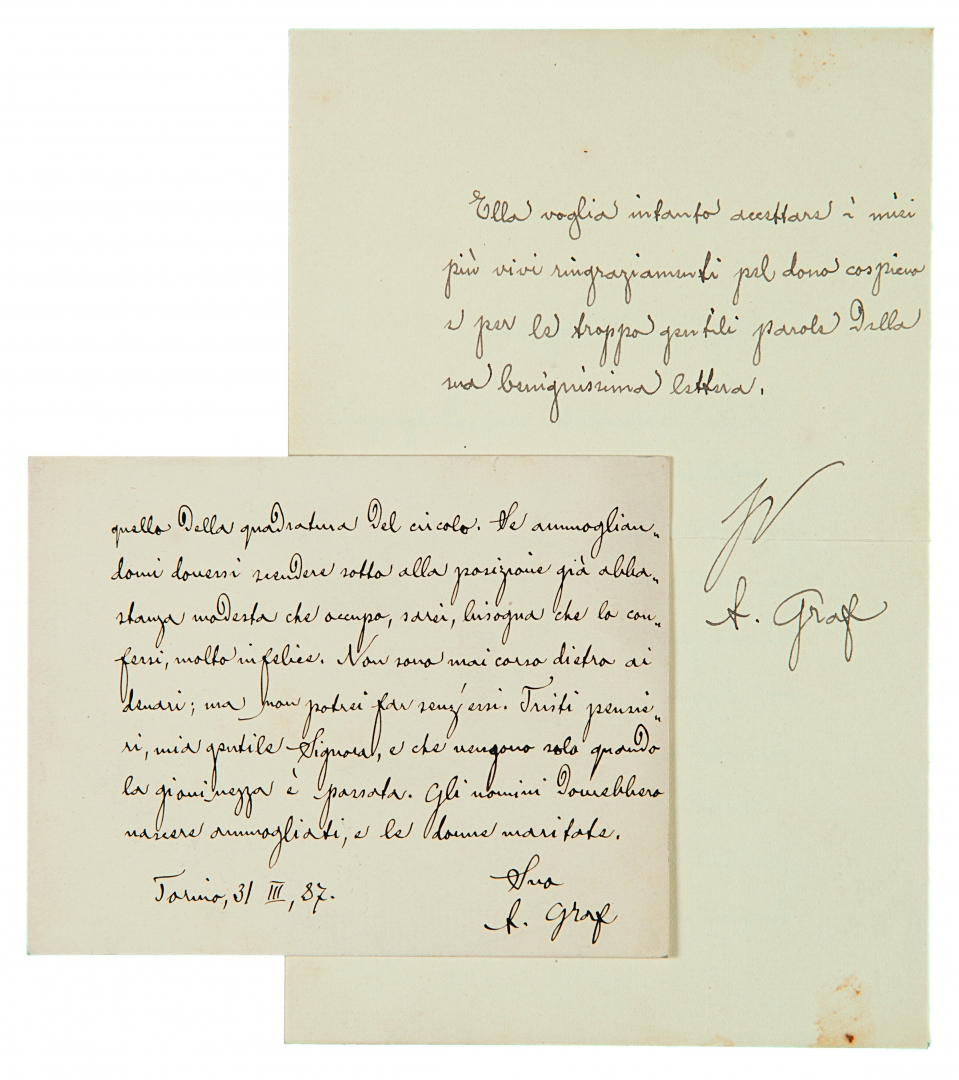 Ella voglia intanto accettare i miei
più vivi ringraziamenti pel dono cospicuo
e per le troppo gentili parole della
sua benignissima lettera.
A. Graf
quello della quadratura del circolo. Se ammoglian„
domi dovessi scendere sotto alla posizione già abba„
stanza modesta che occupo, sarei, bisogna che lo con„
fessi, molto infelice. Non sono mai corso dietro ai
denari; ma non potrei far senz'essi. Tristi pensie„
ri, mia gentile Signora, e che vengono solo quando
la giovinezza è passata. Gli uomini dovrebbero
nascere ammogliati, e le donne maritate.
Torino, 31 III, 87.
Suo
A. Graf